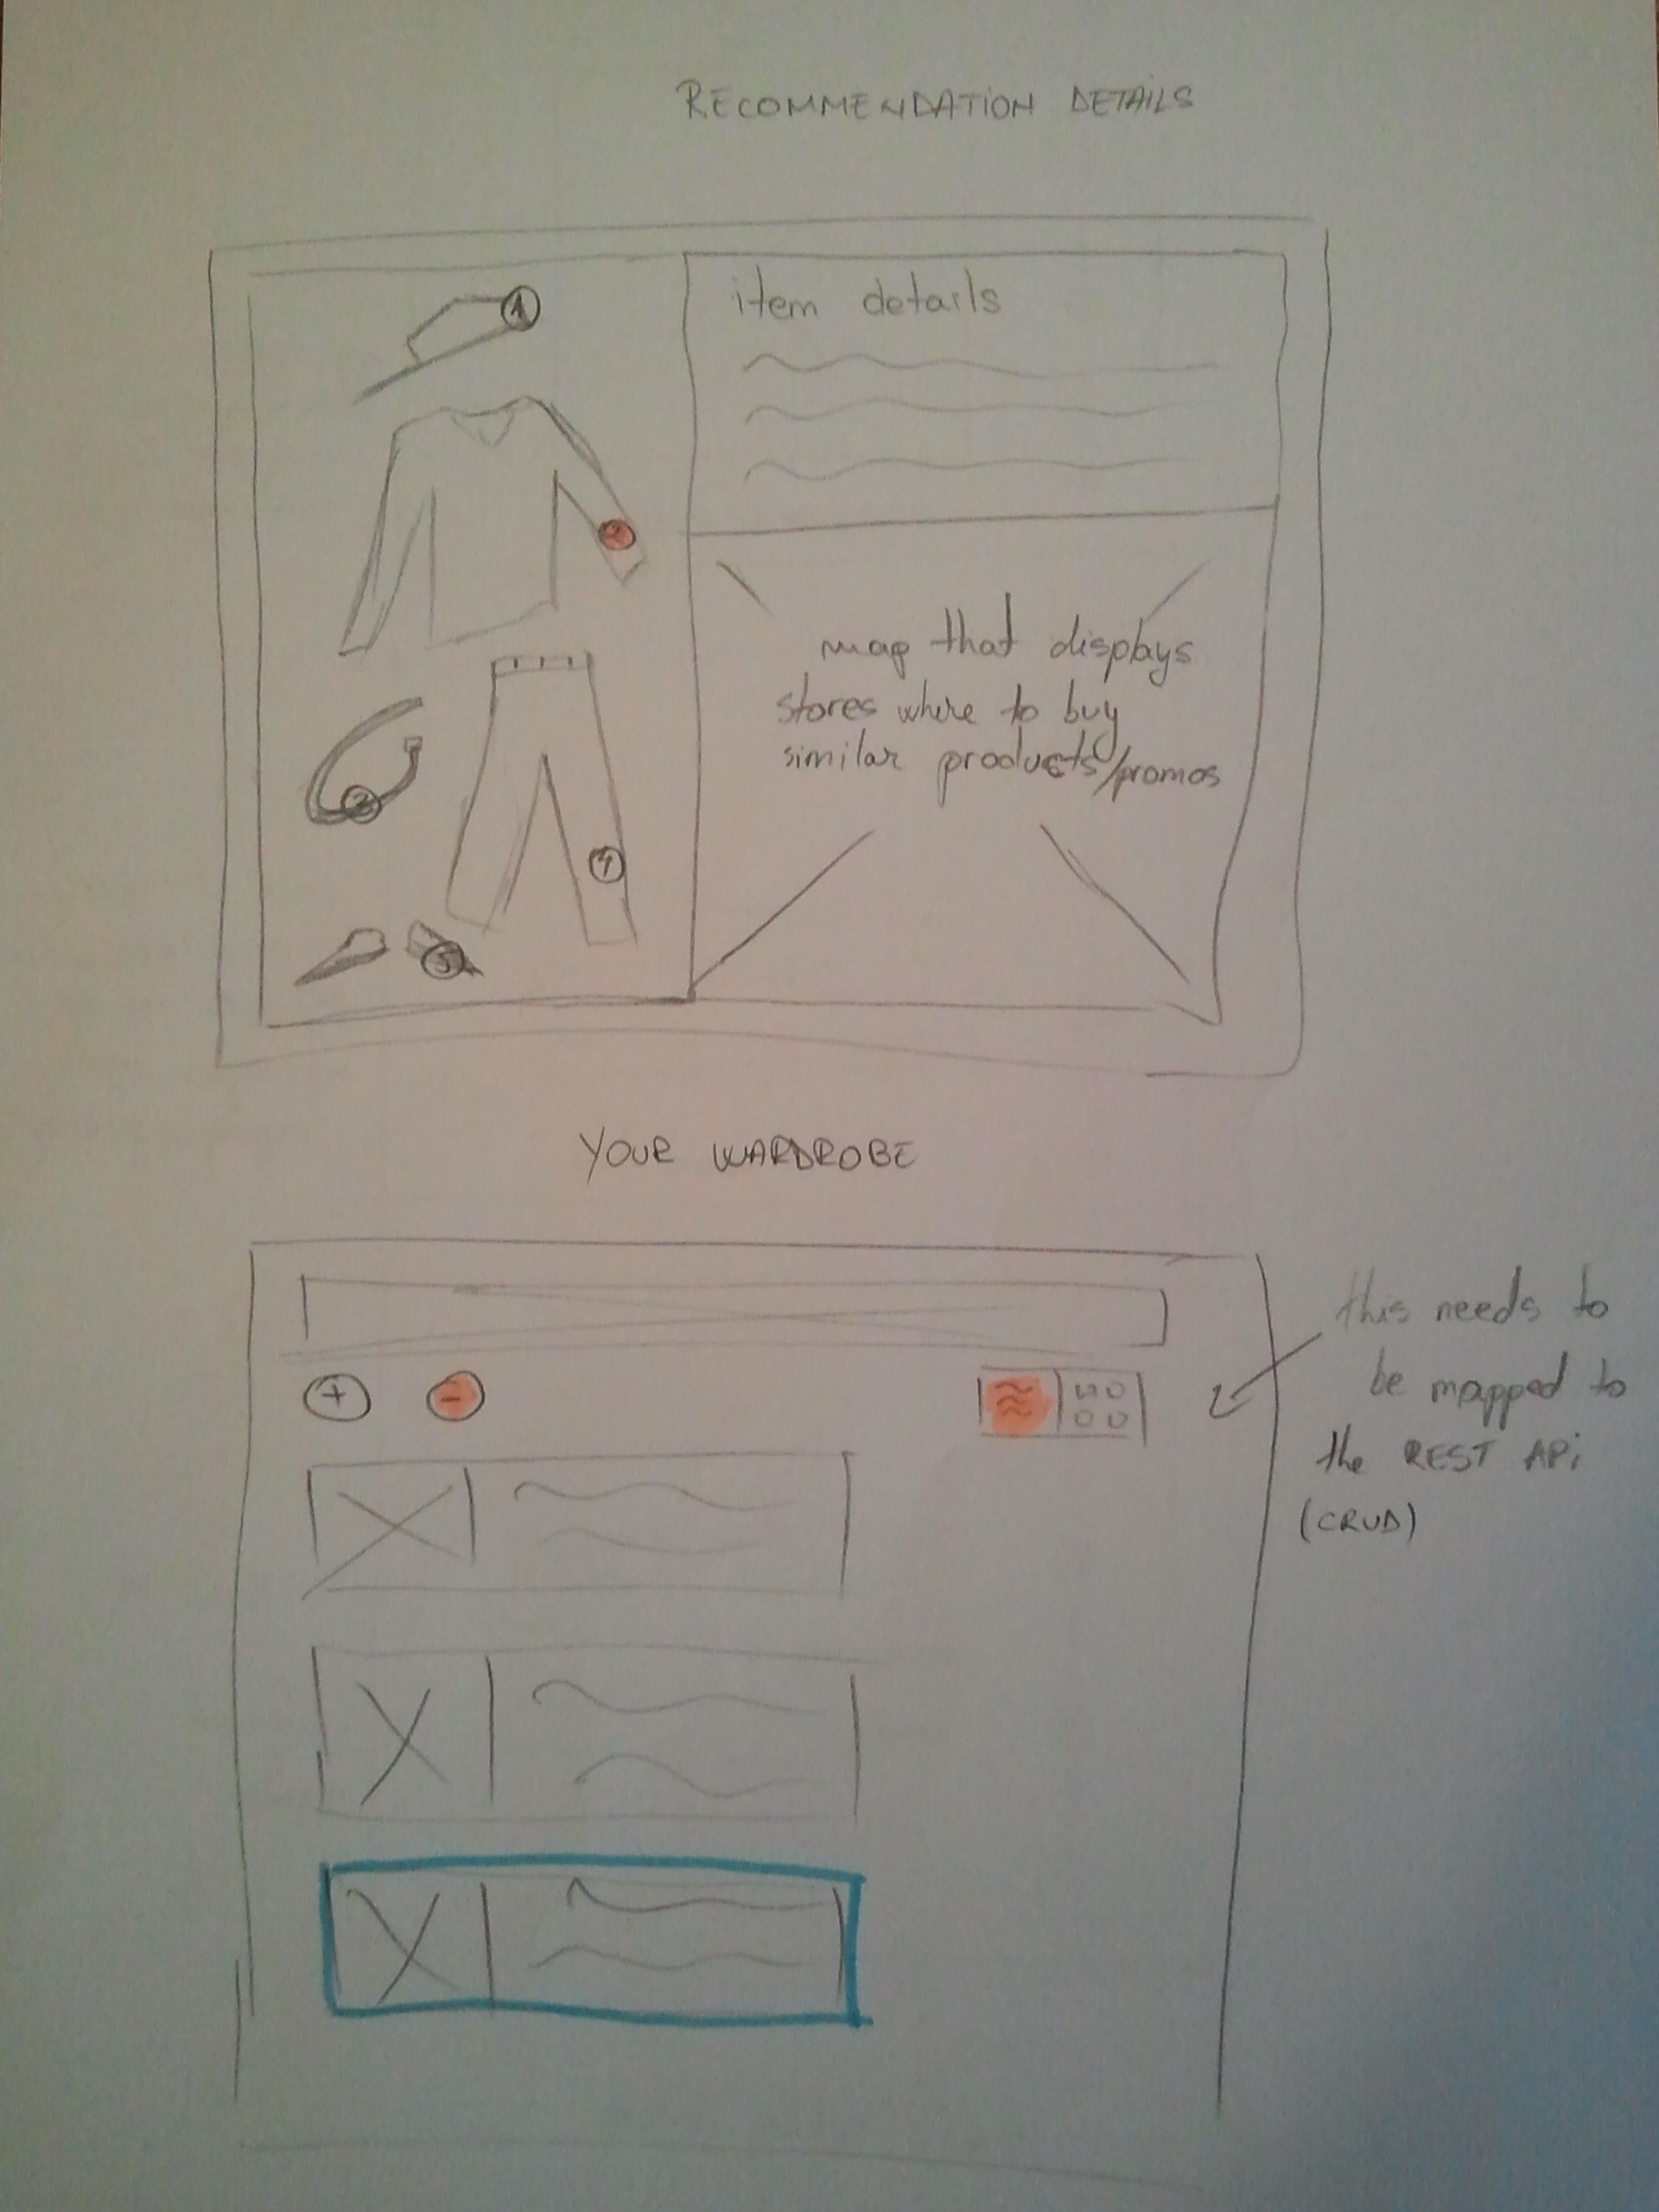 RECOMMENDATION DETAILS
1
item details
2
map that displays
stores where to buy
similar products/promos
3
4
5
YOUR WARDROBE
+
-
this needs to
be mapped to
the REST APi
(CRUD)